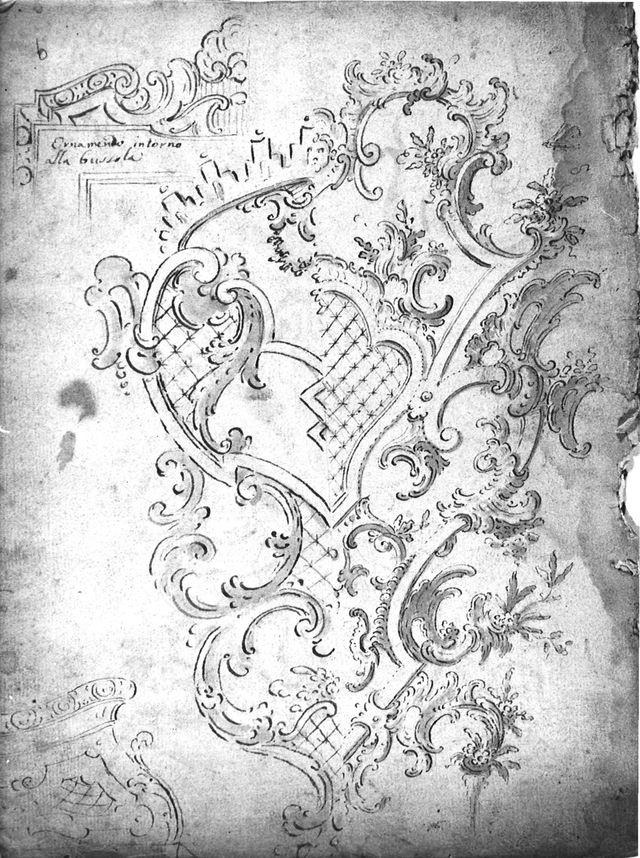 6
Ornamento intorno
alla bussola